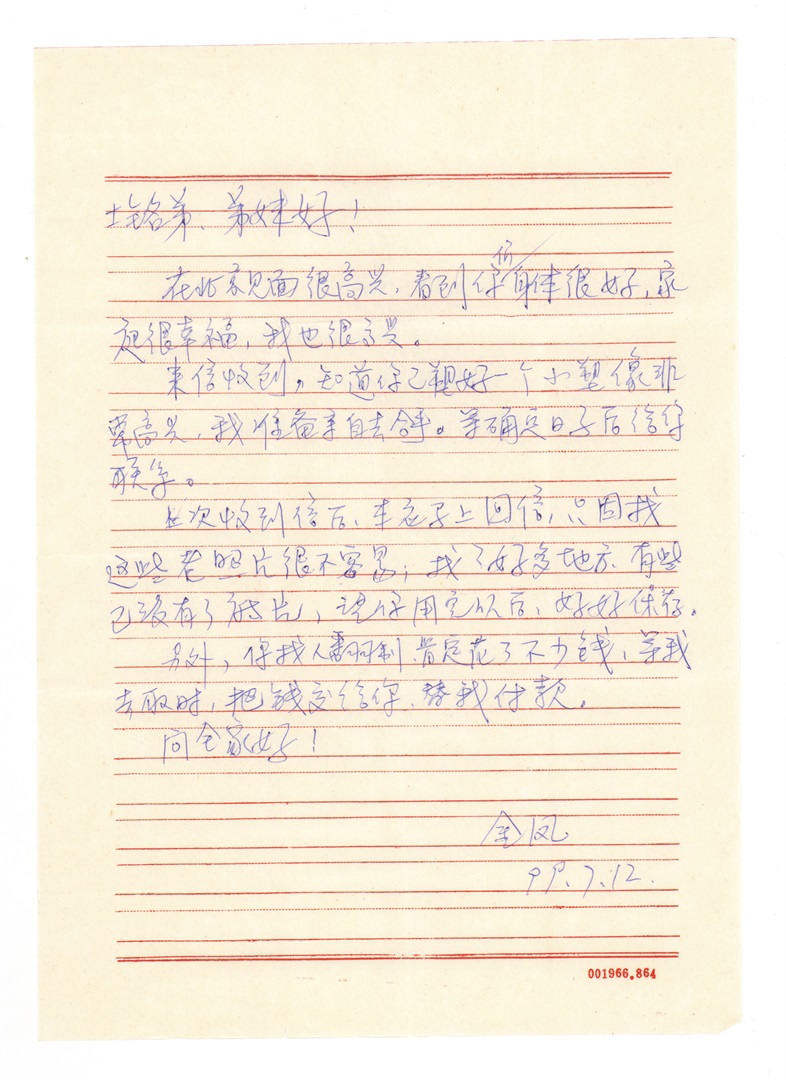 铭弟、弟妹好！
在北京见面很高兴，看到你们身体很好，家
庭很幸福，我也很高兴。
来信收到，知道你已塑好一个小塑像非
常高兴，我准备亲自去合手。等确定日子后给你
联系。
此次收到信后、未在马上回信，只因找
这些老照片很不容易；找了好多地方、有些
已没有了底片，望你用完以后、好好保存。
另外，你找人翻制肯定花了不少钱、等我
去取时，把钱交给你、替我付款。
问全家好！
金凤
99.7.12.
001966.864